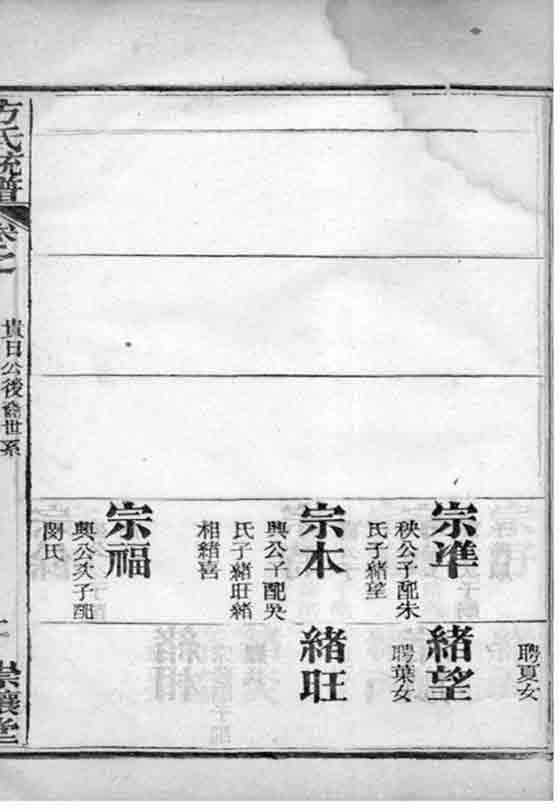 聘夏女
宗準
秧公子配朱
氏子緒望
緒望
聘葉女
宗本
興公子配吳
氏子緒旺緒
相緒喜
緒旺
宗福
興公次子配
閔氏
方氏統譜
卷之
貴日公後 世系
堂